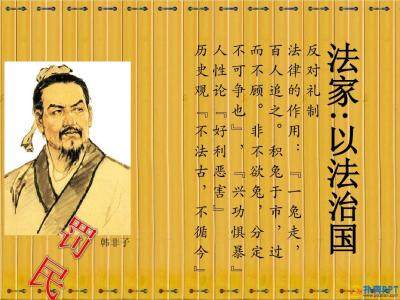 法家：以法治国
反对礼制
法律的作用：『一兔走，
百人追之。积兔于市，过
而不顾。非不欲兔，分定
不可争也』，『兴功惧暴』
人性论『好利恶害』
历史观『不法古，不循今』
韩非子
罚民